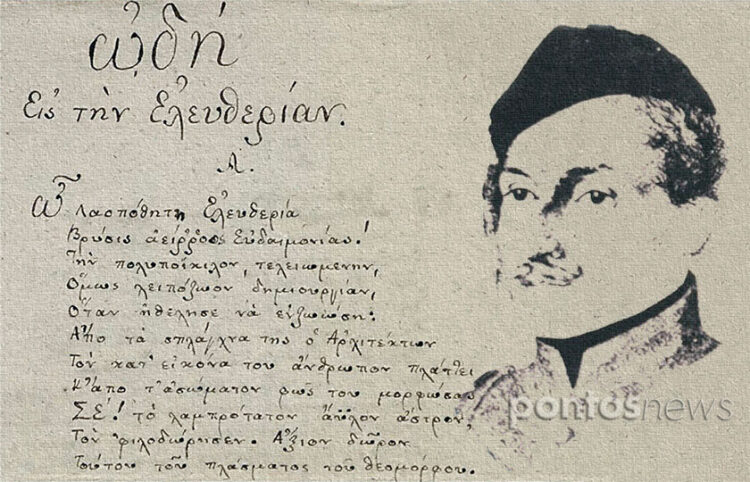 ᾠδή
Εἰς τὴν Ἐλευθερίαν.
Α.
Ὦ Λαοπόθητη Ἐλευθερία
Βρύσις ἀείῤῥοος Εὐδαιμονίας!
Τὴν πολυποίκιλον, τελειωμένην,
Ὅμως λειπόζωον δημιουργίαν,
Ὅταν ἠθέλησε νὰ εὐζωώσῃ·
Ἀπὸ τὰ σπλάγχνα της ὁ Ἀρχιτέκτων
Τὸν κατ' εἰκόνα του ἄνθρωπον πλάττει
Κ' ἀπὸ τ' ἀσώματον φῶς του μορφώσας
ΣΕ! τὸ λαμπρότατον ἄϋλον ἄστρον,
Τὸν φιλοδώρησεν. Ἄξιον δῶρον
Τοῦτον τοῦ πλάσματος τοῦ θεομόρφου.
pontosnews